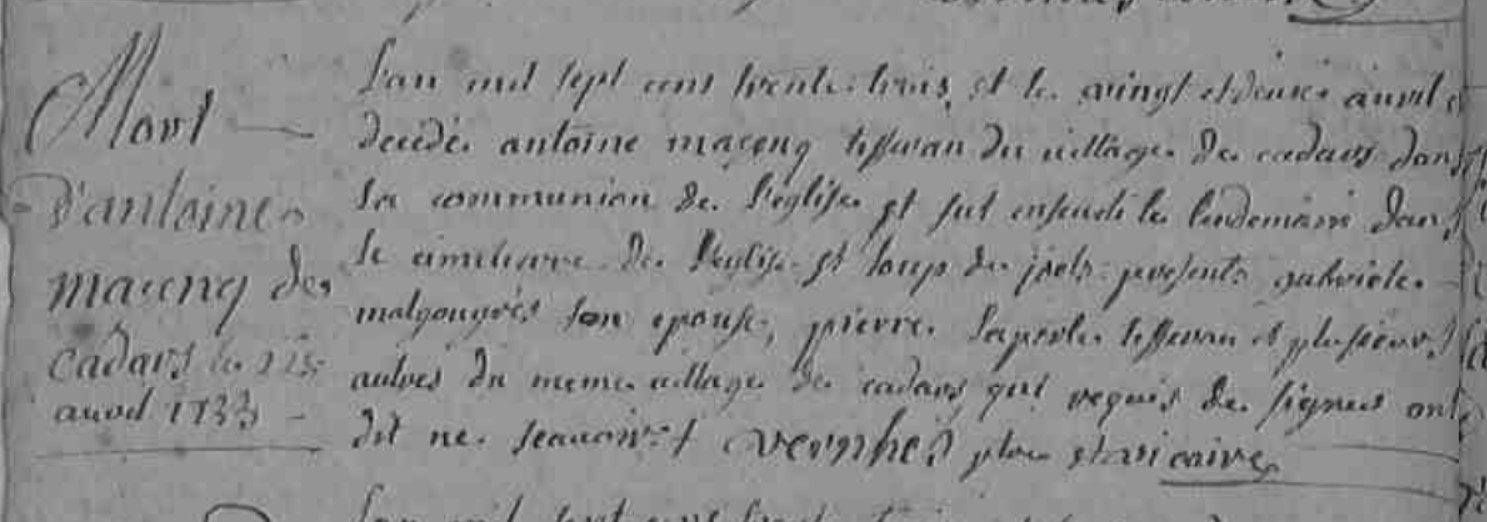 Mort
d'antoine
macenq de
cadars le 22e
avril 1733
L'an mil sept cens trente trois et le vingt et deuxe avril e
decédé antoine maçenq tisseran du village de cadars dans
la communion de l'eglise et fut enseveli le lendemain dans
le cimetiere de l'eglise st loup de presents gabriele
son epouse, pierre tisseran et plusieurs
autres du meme village de cadars qui requis de signer ont
dit ne scavoir vernhes ptre et vicaire
L'an mil sept cens trente